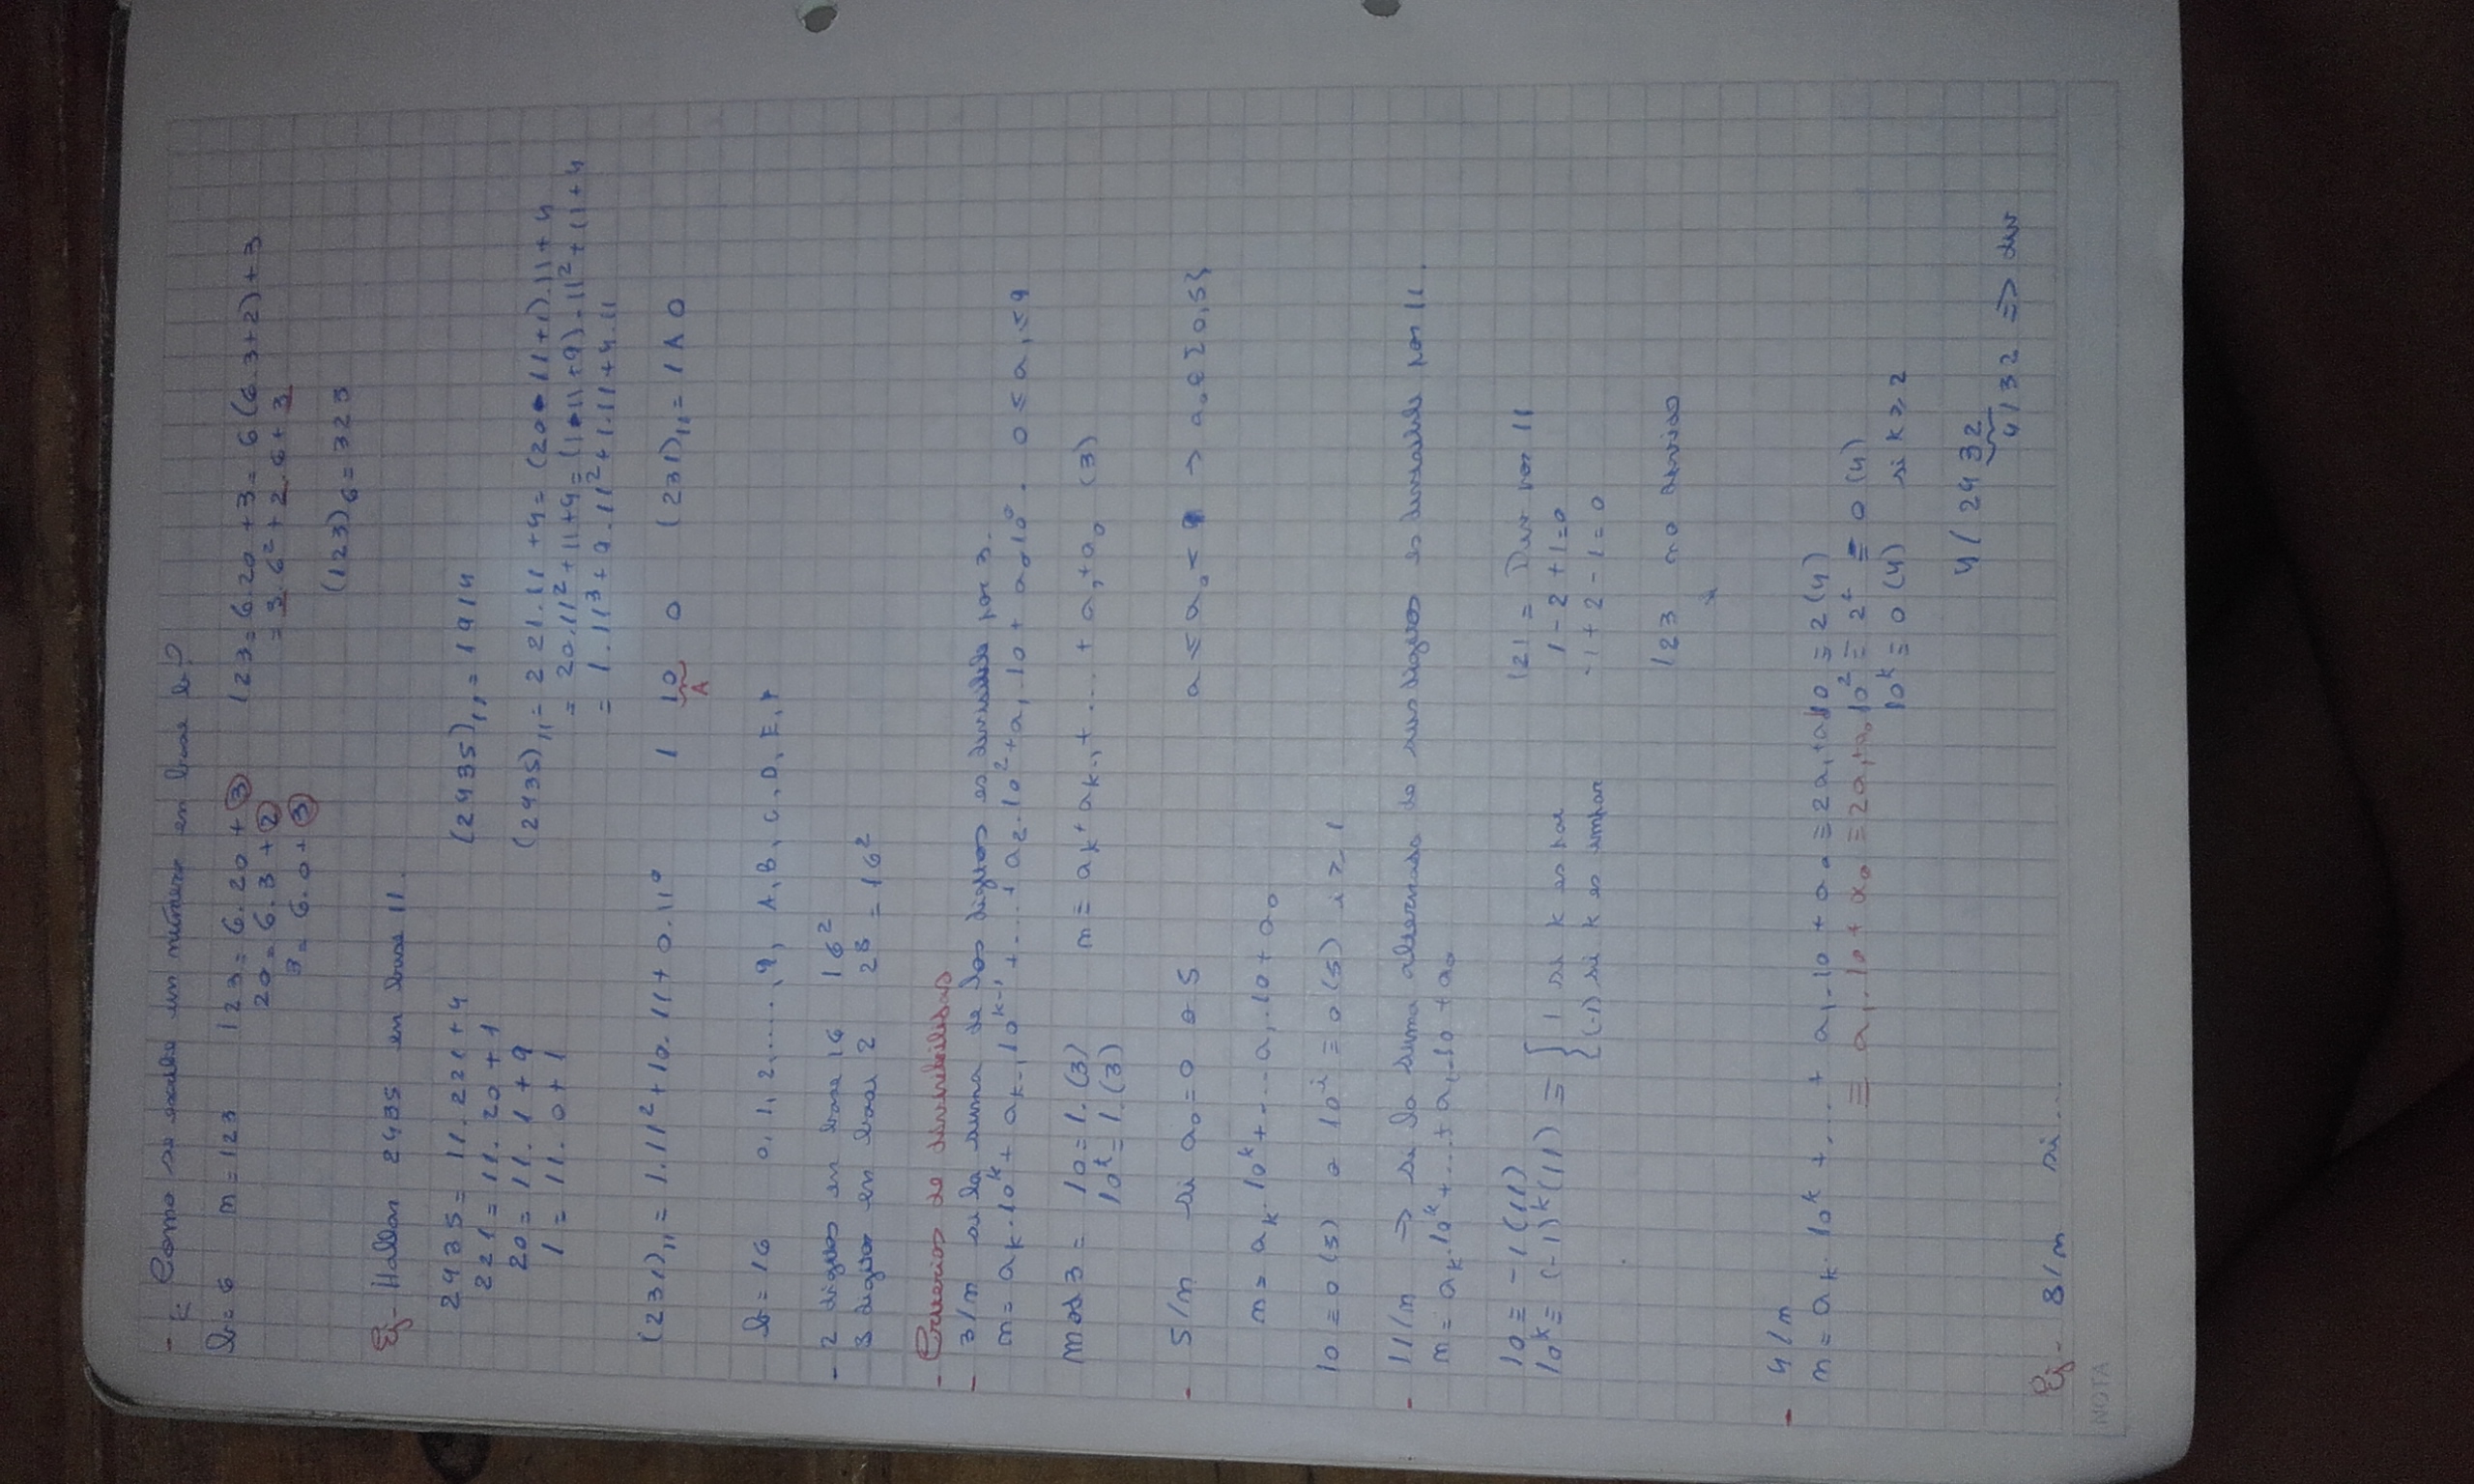 - ¿ Como se escribe un número en base b?
b = 6 n = 123 123 = 6.20 + 3 123 = 6.20 + 3 = 6(6.3+2)+3
20 = 6.3 + 2 = 3.6² + 2.6 + 3
3 = 6.0 + 3
(123)₆ = 323
Ej- Hallar 2435 en base 11.
2435 = 11.221 + 4 (2435)₁₁ = 1914
221 = 11.20 + 1
20 = 11.1 + 9 (2435)₁₁ = 221.11 + 4 = (20.11+1).11 + 4
1 = 11.0 + 1 = 20.11² + 11 + 4 = (1.11+9).11² + 11 + 4
= 1.11³ + 9.11² + 1.11 + 4.11
(231)₁₁ = 1.11² + 10.11 + 0.11⁰ 1 10 0 (231)₁₁ = 1A0
A
b = 16 0, 1, 2, ....., 9, A, B, C, D, E, F
- 2 digitos en base 16 16²
8 digitos en base 2 2⁸ = 16²
- Criterios de divisibilidad
- 3/n si la suma de los digitos es divisible por 3.
n = aₖ.10ᵏ + aₖ₋₁10ᵏ⁻¹ + ... + a₂.10² + a₁.10 + a₀10⁰. 0 ≤ aᵢ ≤ 9
mod 3 = 10 = 1.(3) n ≡ aₖ + aₖ₋₁ + ... + a₁ + a₀ (3)
10ᵏ = 1.(3)
- 5/n si a₀ = 0 o 5 a ≤ a₀ < 9 → a₀ ∈ {0,5}
n = aₖ.10ᵏ + ... a₁.10 + a₀
10 ≡ 0(5) o 10ⁱ ≡ 0(5) i ≥ 1
- 11/n → si la suma alternada de sus digitos es divisible por 11.
n = aₖ.10ᵏ + ... + a₁.10 + a₀
10 ≡ -1(11) 121 = Div por 11
10ᵏ ≡ (-1)ᵏ(11) ≡ { 1 si k es par 1 - 2 + 1 = 0
{ (-1) si k es impar -1 + 2 - 1 = 0
123 no divide
- 4/n
n = aₖ.10ᵏ + ... + a₁.10 + a₀ ≡ 2a₁+a₀ 10 ≡ 2(4)
≡ a₁.10 + a₀ ≡ 2a₁+a₀ 10² ≡ 2² ≡ 0(4)
10ᵏ ≡ 0(4) si k ≥ 2
4/2432
4/32 => div
Ej- 8/n si...
NOTA